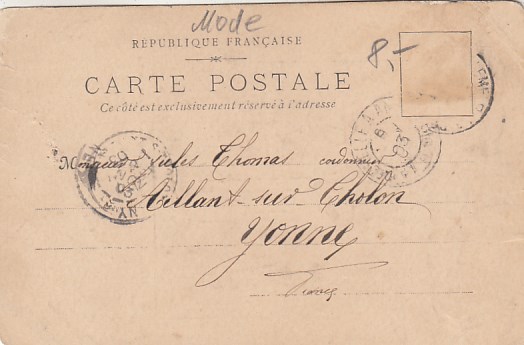 Mode
8,-
RÉPUBLIQUE FRANÇAISE
CARTE POSTALE
Ce côté est exclusivement réservé à l'adresse
Monsieur Jules Thomas cordonnier
Aillant-sur-Tholon
Yonne
03